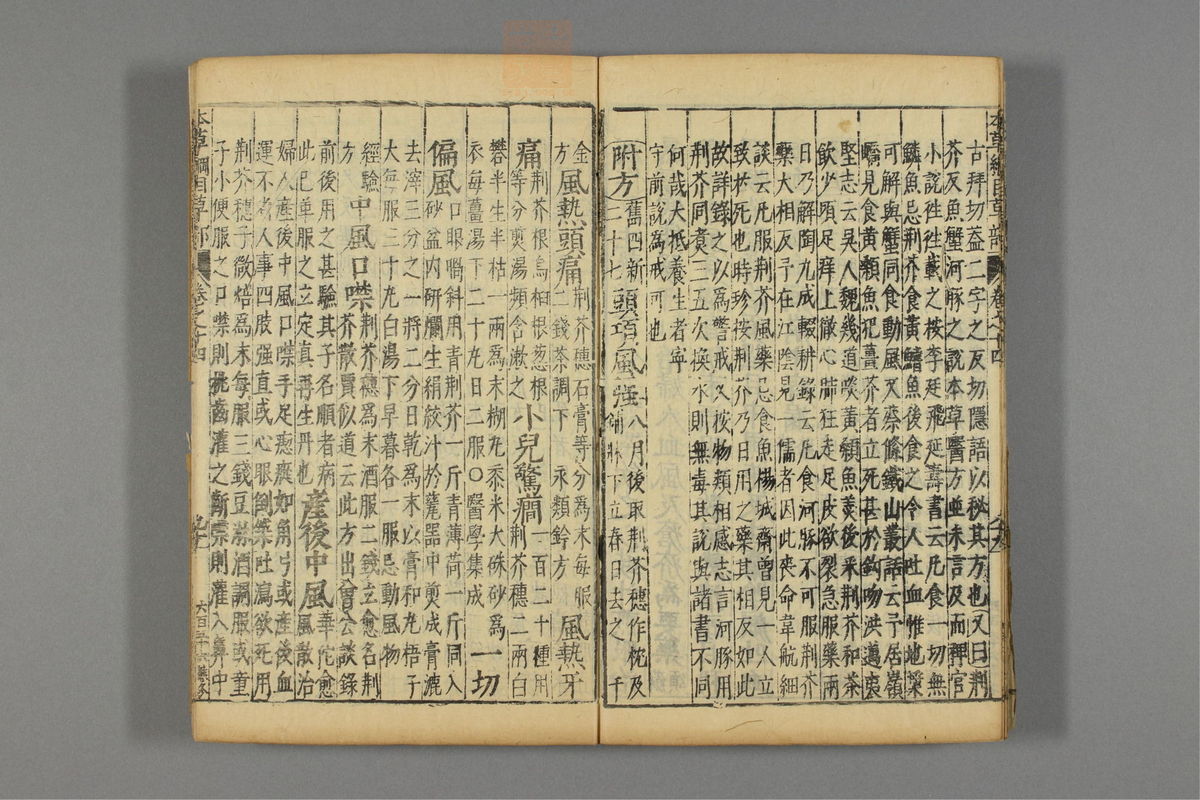 古拜切蓋二字之反切隱語以秘其方也又曰荆
芥反魚蟹河豚之說本草醫方並未言及而稗官
小說徃徃載之按李廷飛延壽書云凡食一切無
鱗魚忌荆芥食黃鱨魚後食之令人吐血惟地漿
可解與蟹同食動風又蔡絛鐵山叢話云予居嶺
嶠見食黃顙魚犯薑芥者立死甚於鈎吻洪邁夷
堅志云吴人魏幾道啖黃顙魚羮後采荆芥和茶
飲少頃足痒上徹心肺狂走足皮欲裂急服藥兩
日乃解陶九成輟耕錄云凡食河豚不可服荆芥
藥大相反予在江陰見一儒者因此喪命韋航細
談云凡服荆芥風藥忌食魚楊誠齋曾見一人立
致於死也時珍按荆芥乃日用之藥其相反如此
故詳錄之以爲警戒又按物類相感志言河豚用
荆芥同煮三五次換水則無毒其說與諸書不同
何哉大抵養生者寜
守前說爲戒可也
附方
舊四新
二十七
頭項風强
八月後取荆芥穗作枕及
鋪牀下立春日去之 千
金
方
風熱頭痛
荆芥穗石膏等分爲末每服
二錢茶調下 永類鈐方
風熱牙
痛
荆芥根烏桕根葱根
等分煎湯頻含漱之
小兒驚癇
荆芥穗二兩白
一百二十種用
礬半生半枯一兩爲末糊丸黍米大硃砂爲
衣每薑湯下二十丸日二服○醫學集成
一切
偏風
口眼喎斜用青荆芥一斤青薄荷一斤同入
砂盆內研爛生絹絞汁於甆器中煎成膏漉
去滓三分之一將二分日乾爲末以膏和丸梧子
大每服三十丸白湯下早暮各一服忌動風物
經驗
方
中風口噤
荆芥穗爲末酒服二錢立愈名荆
芥散賈似道云此方出曾公談錄
前後用之甚驗其子名順者病
此已單服之立定真再生丹也
產後中風
華陀愈
風散治
婦人產後中風口噤手足瘛瘲如角弓或產後血
運不省人事四肢强直或心眼倒築吐瀉欲死用
荆芥穗子微焙爲末每服三錢豆淋酒調服或童
子小便服之口噤則挑齒灌之齗噤則灌入鼻中